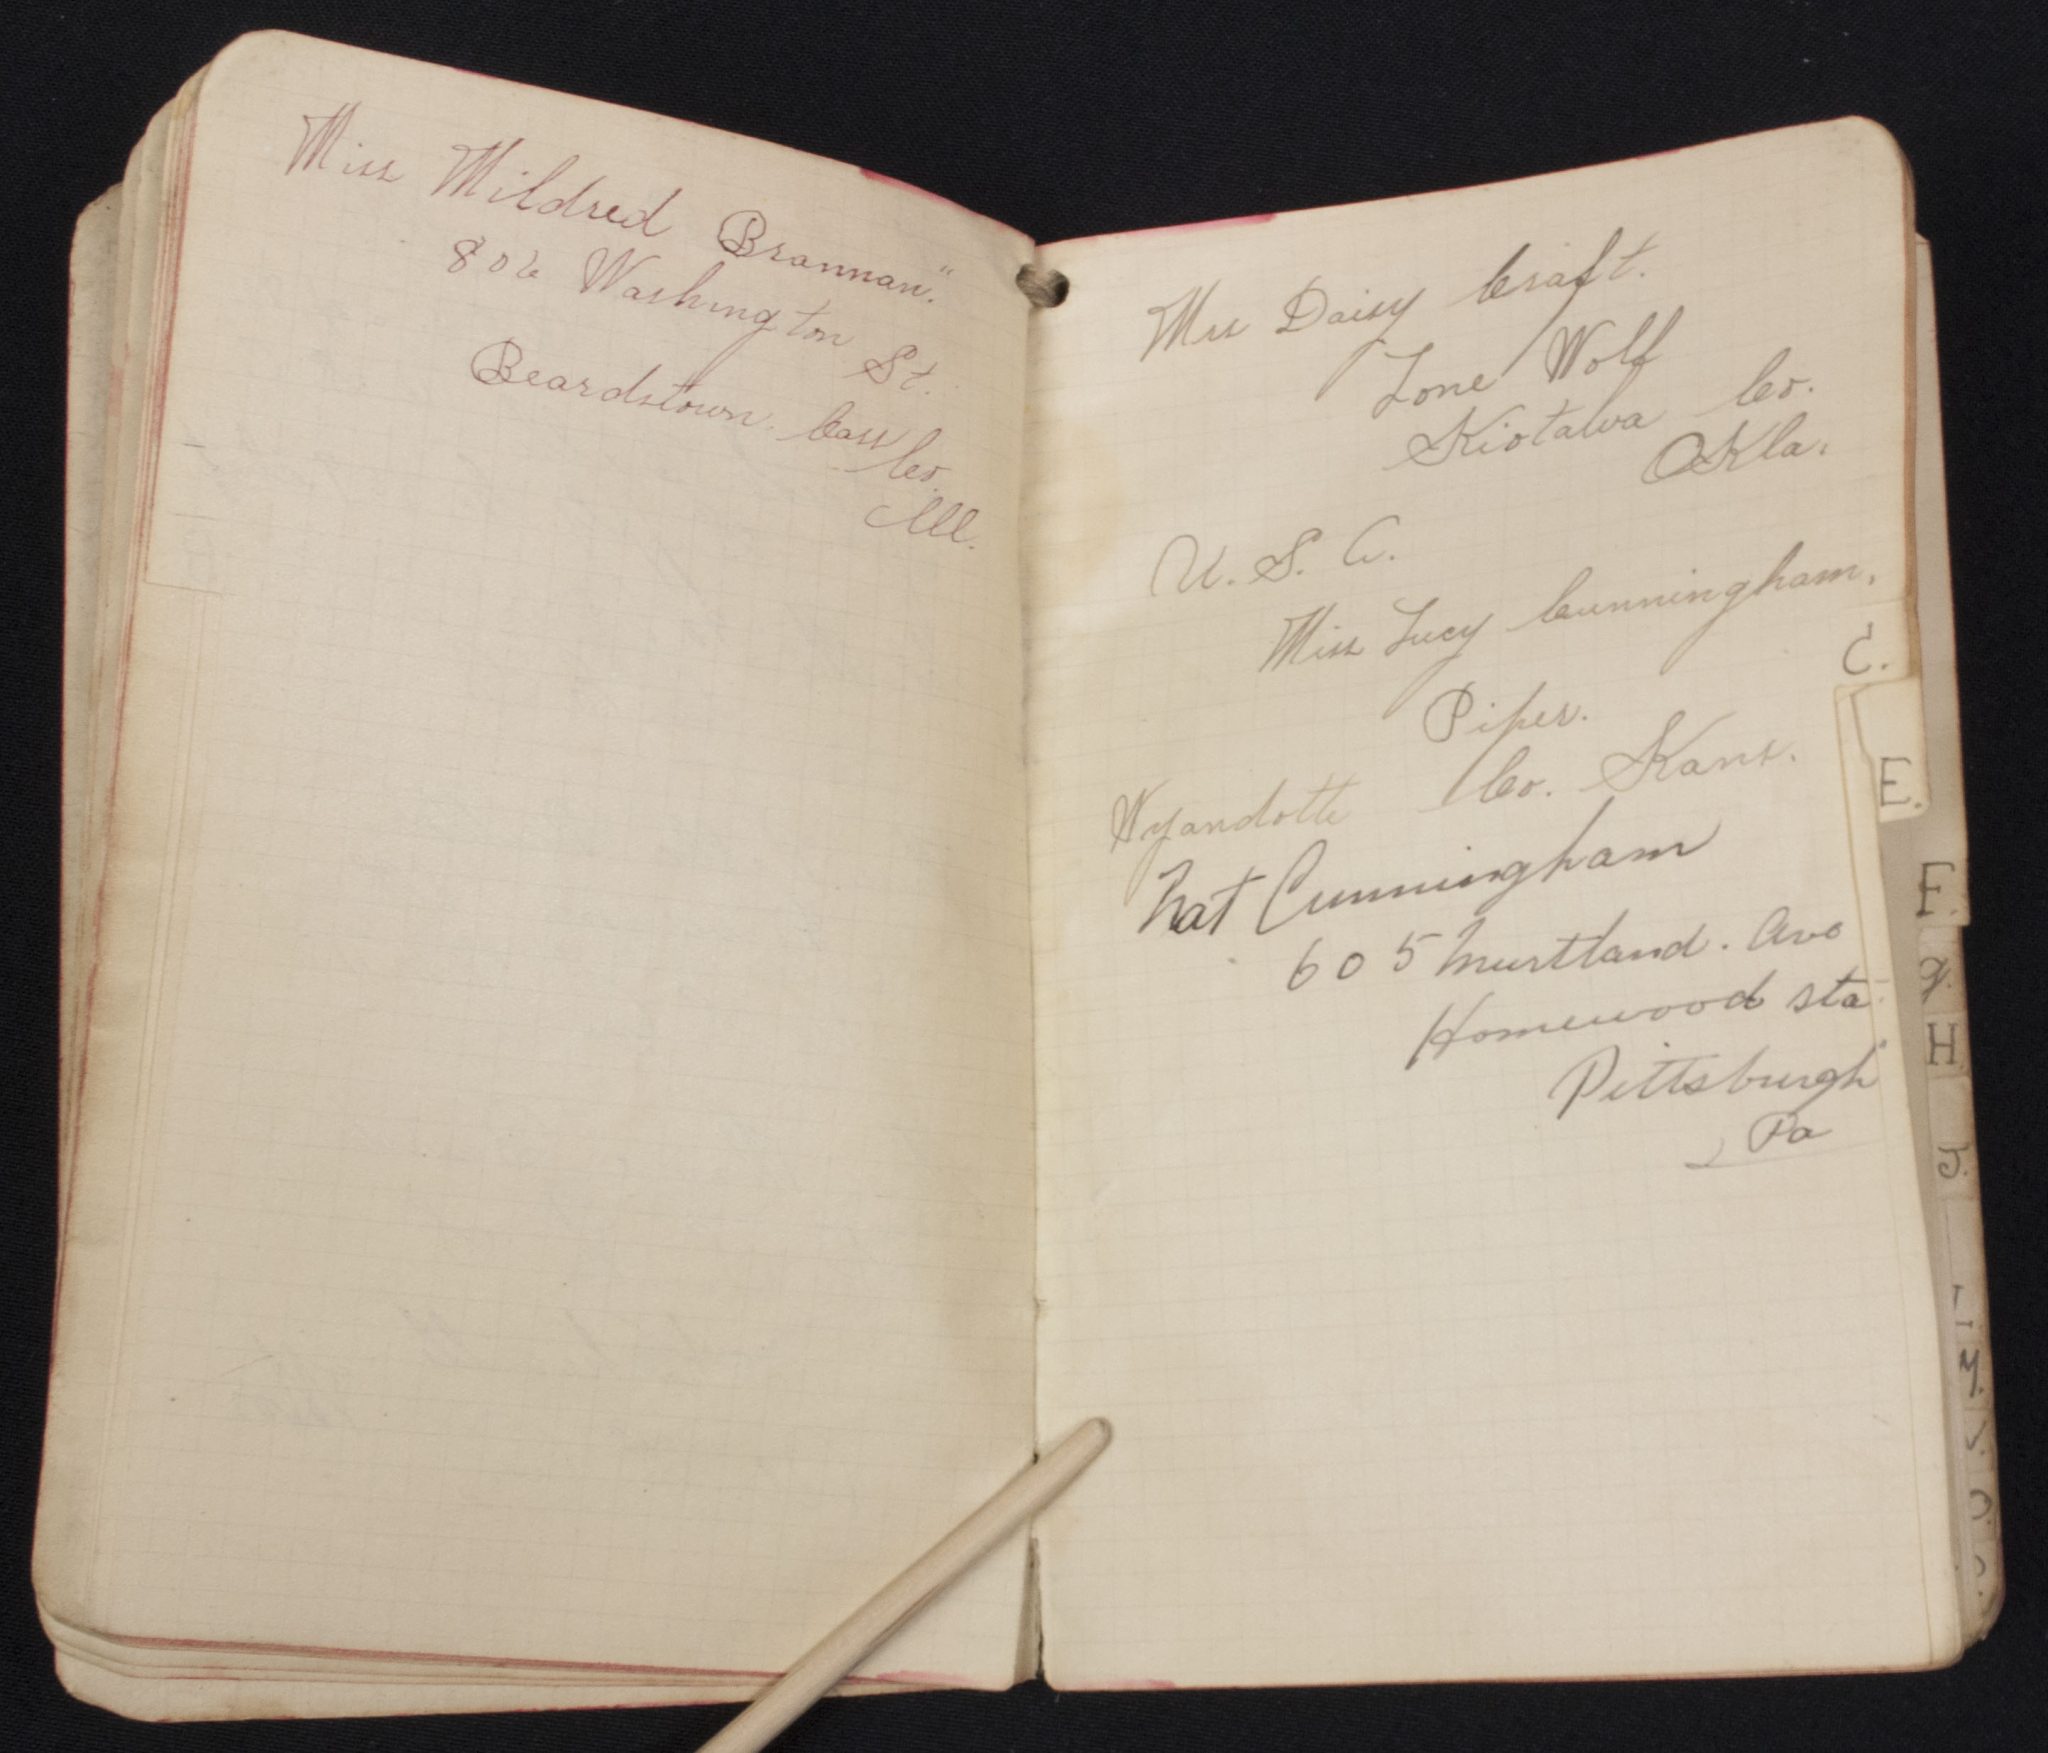 Miss Mildred Brannan."
806 Washington St.
Beardstown. Cass
Co.
Ill.
Mrs Daisy Craft.
Lone Wolf
Kiotawa Co.
Okla.
U. S. A.
Miss Lucy Cunningham.
Piper.
Wyandotte Co. Kans.
Nat Cunningham
605 Murtland. Ave
Homewood sta
Pittsburgh
Pa
C.
E.
F.
G.
H.
J.
L.
M.
O.